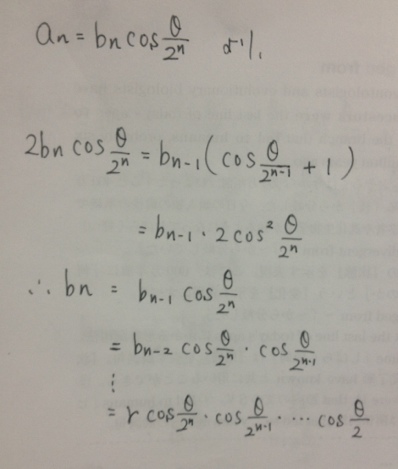 an = bn cos θ/2ⁿ より、
2bn cos θ/2ⁿ = bn-1 ( cos θ/2ⁿ⁻¹ + 1 )
= bn-1 · 2 cos² θ/2ⁿ
∴ bn = bn-1 cos θ/2ⁿ
= bn-2 cos θ/2ⁿ · cos θ/2ⁿ⁻¹
⋮
= r cos θ/2ⁿ · cos θ/2ⁿ⁻¹ · … cos θ/2